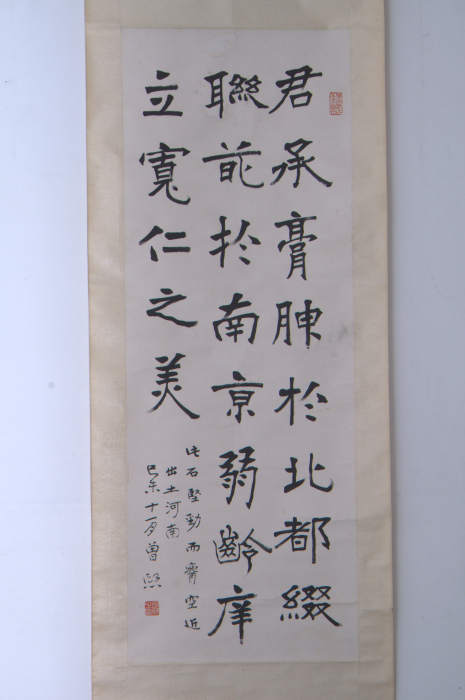 君承膏腴於北都綴
聯於南京弱齡庠
立寬仁之美
此石堅勁而空近
出土河南
己未十一月曾熙